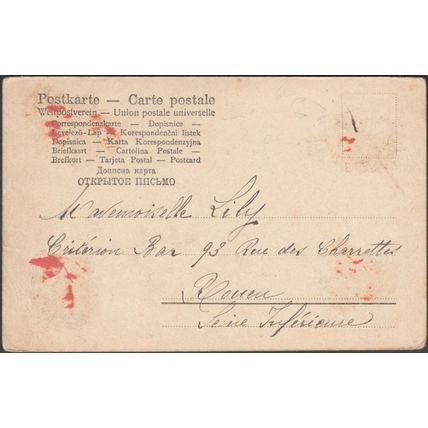 Postkarte — Carte postale
Weltpostverein — Union postale universelle
Correspondenzkarte — Dopisnice —
Levelező-Lap — Korespondenční listek
Dopisnica — Karta Korespondenzyjna
Briefkaart — Cartolina Postale —
Brefkort — Tarjeta Postal — Postcard
Дописна карта
ОТКРЫТОЕ ПИСЬМО
Mademoiselle Lily
Critérion Bar 93 Rue des Charrettes
Rouen
Seine Inférieure